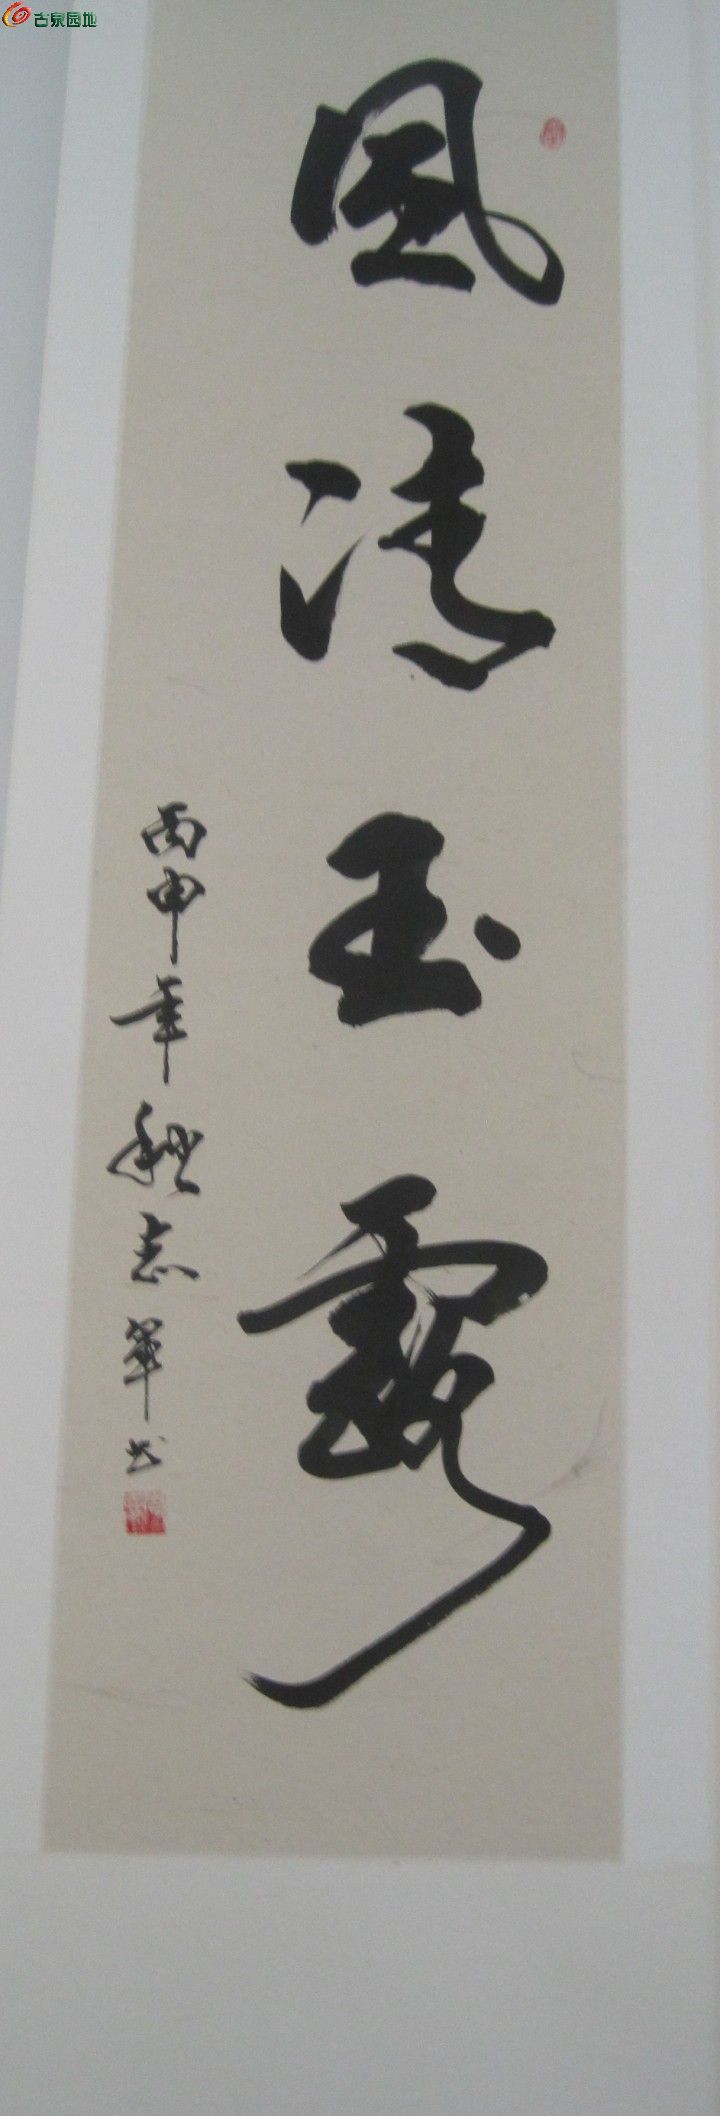 古泉园地
風清玉露
丙申年秋志翠书